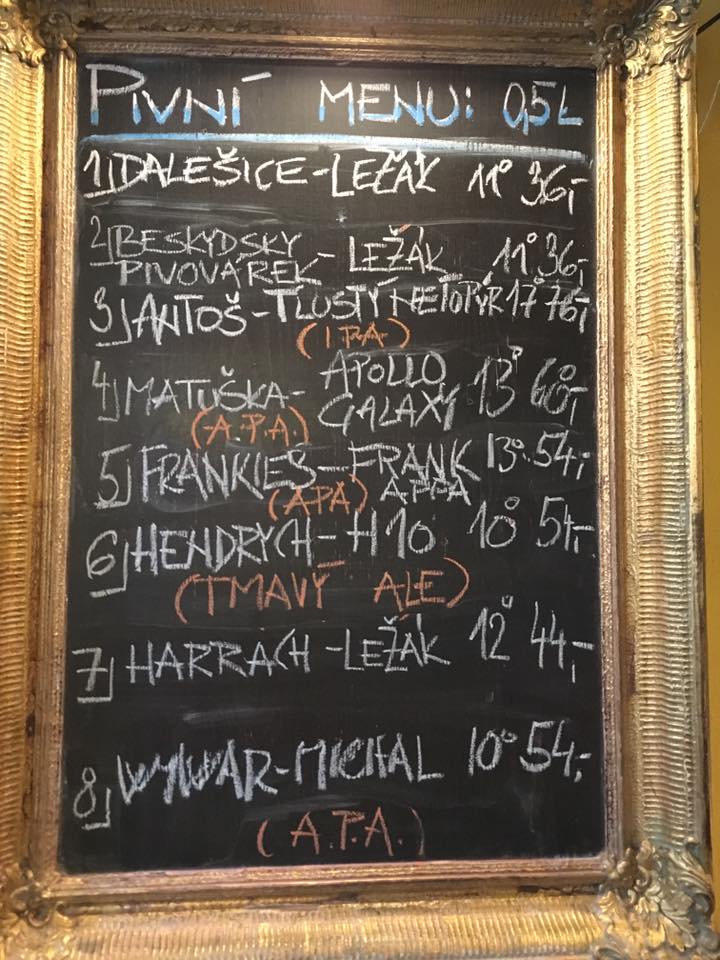 PIVNÍ MENU: 0,5L
1) DALEŠICE-LEŽÁK 11° 36,-
2) BESKYDSKY PIVOVÁREK - LEŽÁK 11° 36,-
3) ANTOŠ-TLUSTÝ NETOPÝR 17° 76,-
(IPA)
4) MATUŠKA- APOLLO GALAXY 13° 60,-
(A.P.A.)
5) FRANKIES-FRANK APPA 13° 54,-
(APA)
6) HENDRYCH-H10 10° 54,-
(TMAVÝ ALE)
7) HARRACH-LEŽÁK 12° 44,-
8) WYWAR-MICHAL 10° 54,-
(A.P.A.)